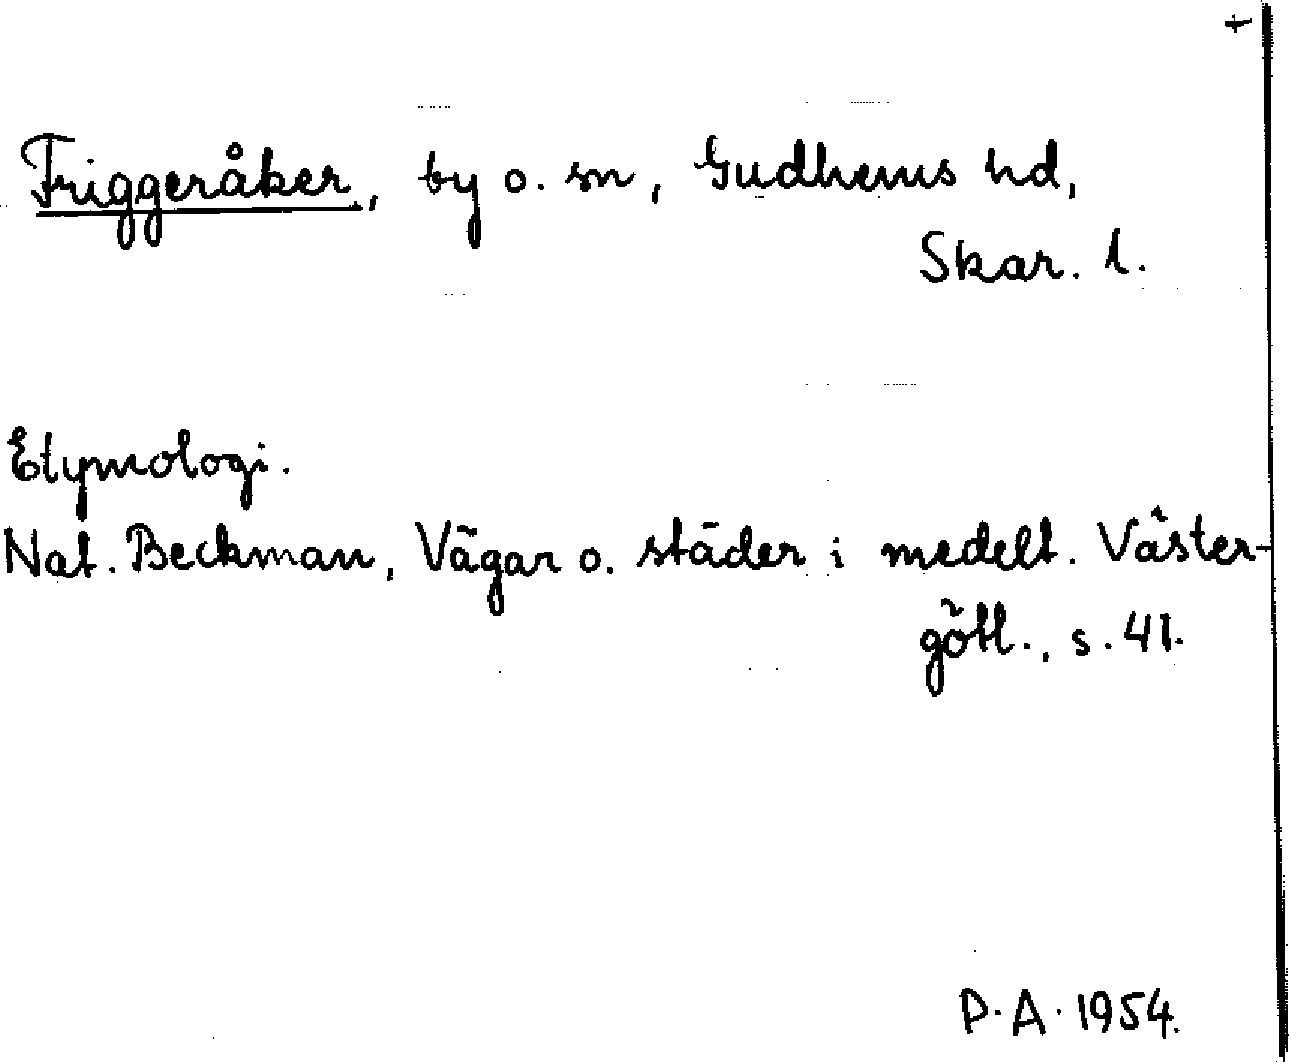 +
Friggeråker, by o. sn, Gudhems hd,
Skar. l.
Etymologi.
Nat. Beckman, Vägar o. städer i medelt. Väster-
götl., s. 41.
P.A. 1954.